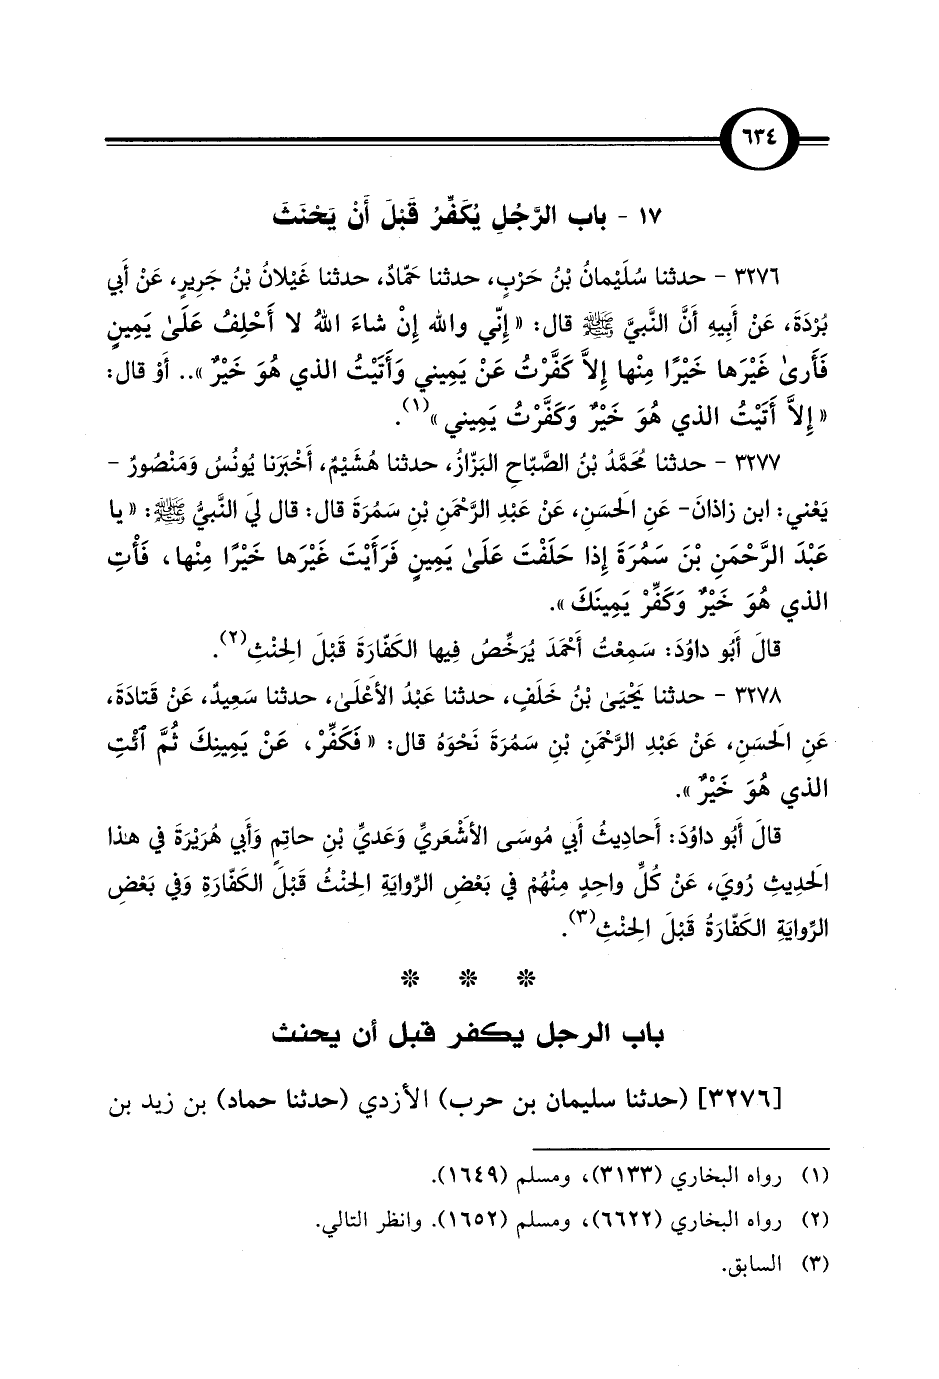 ٦٣٤
١٧ - باب الرَّجُلِ يُكَفِّرُ قَبْلَ أَنْ يَحْنَثَ
٣٢٧٦ - حدثنا سُلَيْمانُ بْنُ حَرْبٍ، حدثنا حَمّادٌ، حدثنا غَيْلانُ بْنُ جَرِيرٍ، عَنْ أَبي
بُرْدَةَ، عَنْ أَبِيهِ أَنَّ النَّبيَّ ﷺ قال: « إِنّي والله إِنْ شاءَ اللهُ لا أَحْلِفُ عَلَىٰ يَمِينٍ
فَأَرىٰ غَيْرَها خَيْرًا مِنْها إِلاَّ كَفَّرْتُ عَنْ يَمِيني وَأَتَيْتُ الذي هُوَ خَيْرٌ ».. أَوْ قال:
« إِلاَّ أَتَيْتُ الذي هُوَ خَيْرٌ وَكَفَّرْتُ يَمِيني »(١).
٣٢٧٧ - حدثنا مُحَمَّدُ بْنُ الصَّبّاحِ البَزّازُ، حدثنا هُشَيْمٌ، أَخْبَرَنا يُونُسُ وَمَنْصُورٌ -
يَعْني: ابن زاذانَ- عَنِ الحَسَنِ، عَنْ عَبْدِ الرَّحْمَنِ بْنِ سَمُرَةَ قال: قال ليَ النَّبيُّ ﷺ: « يا
عَبْدَ الرَّحْمَنِ بْنَ سَمُرَةَ إِذا حَلَفْتَ عَلَىٰ يَمِينٍ فَرَأَيْتَ غَيْرَها خَيْرًا مِنْها، فَأْتِ
الذي هُوَ خَيْرٌ وَكَفِّرْ يَمِينَكَ ».
قالَ أَبُو داوُدَ: سَمِعْتُ أَحْمَدَ يُرَخِّصُ فِيها الكَفّارَةَ قَبْلَ الحِنْثِ(٢).
٣٢٧٨ - حدثنا يَحْيَىٰ بْنُ خَلَفٍ، حدثنا عَبْدُ الأَعْلَىٰ، حدثنا سَعِيدٌ، عَنْ قَتادَةَ،
عَنِ الحَسَنِ، عَنْ عَبْدِ الرَّحْمَنِ بْنِ سَمُرَةَ نَحْوَهُ قال: « فَكَفِّرْ، عَنْ يَمِينِكَ ثُمَّ ٱئْتِ
الذي هُوَ خَيْرٌ ».
قالَ أَبُو داوُدَ: أَحادِيثُ أَبي مُوسَى الأَشْعَريِّ وَعَديِّ بْنِ حاتِمٍ وَأَبي هُرَيْرَةَ في هذا
الحَدِيثِ رُويَ، عَنْ كُلِّ واحِدٍ مِنْهُمْ في بَعْضِ الرِّوايَةِ الحِنْثُ قَبْلَ الكَفّارَةِ وَفي بَعْضِ
الرِّوايَةِ الكَفّارَةُ قَبْلَ الحِنْثِ(٣).
* * *
باب الرجل يكفر قبل أن يحنث
[٣٢٧٦] (حدثنا سليمان بن حرب) الأزدي (حدثنا حماد) بن زيد بن
(١) رواه البخاري (٣١٣٣)، ومسلم (١٦٤٩).
(٢) رواه البخاري (٦٦٢٢)، ومسلم (١٦٥٢). وانظر التالي.
(٣) السابق.